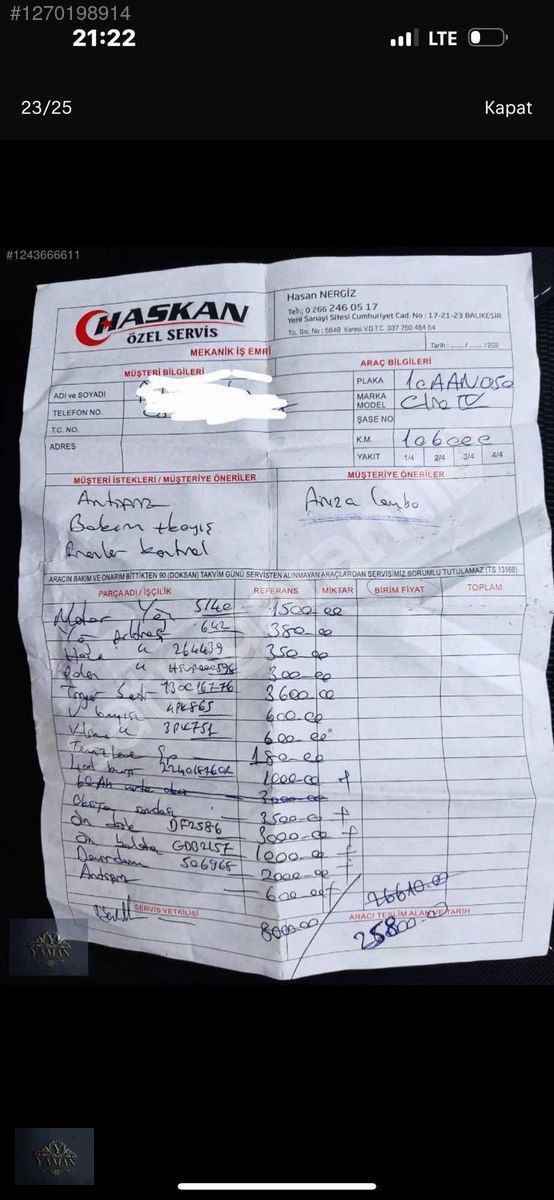 #1270198914
21:22
LTE
23/25
Kapat
#1243666611
HASKAN
ÖZEL SERVİS
Hasan NERGİZ
Tel.: 0 266 246 05 17
Yeni Sanayi Sitesi Cumhuriyet Cad. No : 17-21-23 BALIKESİR
Tic. Sic. No : 5649 Karesi V.D.T.C. 337 750 464 54
Tarih : ....... / ....... /202
MEKANİK İŞ EMRİ
MÜŞTERİ BİLGİLERİ
ARAÇ BİLGİLERİ
ADI ve SOYADI
TELEFON NO.
T.C. NO.
ADRES
PLAKA 10AAN050
MARKA MODEL Clio IV
ŞASE NO
K.M. 106000
YAKIT 1/4 2/4 3/4 4/4
MÜŞTERİ İSTEKLERİ / MÜŞTERİYE ÖNERİLER
MÜŞTERİYE ÖNERİLER
Antifriz
Bakım
kontrol
Arıza Lamba
ARACIN BAKIM VE ONARIM BİTTİKTEN 90 (DOKSAN) TAKVİM GÜNÜ SERVİSTEN ALINMAYAN ARAÇLARDAN SERVİSİMİZ SORUMLU TUTULAMAZ (TS 13168)
PARÇA ADI / İŞÇİLİK REFERANS MİKTAR BİRİM FİYAT TOPLAM
Motor Yağ 5/40 1500-00
Yağ filtresi 642 380-00
Hava " 264439 350-00
Polen " 300-00
Triger Seti 130C16776 3600-00
V kayışı 4PK865 600-00
Klima " 3PK751 600-00
180-00
1000-00 +
3000-00
3500-00 +
Ön disk DF2586 3000-00 +
Ön balata GDB2157 1000-00 +
506968 2000-00 +
Antifriz 600-00+
8000-00
26610-00
25800-00
SERVİS YETKİLİSİ
ARACI TESLİM ALAN VE TARİH
YAMAN
YAMAN